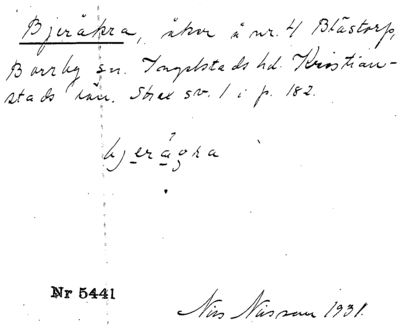 Bjeråkra, åker å nr. 4 Blästorp,
Borrby sn. Ingelstads hd. Kristian-
stads län. Strax sv. 1 i p. 182.
bjerågra
Nr 5441
Nils Nilsson 1931.